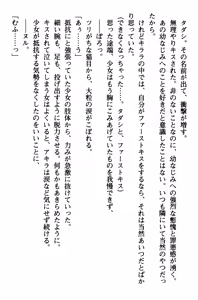 タダシ、その名前が出て、衝撃が増す。
無理やりキスされた、驚きと悲しみ、幼なじみへの強烈な慙愧と罪悪感が湧く。
だってキララの心の中では、自分がファーストキスをするなら、それは当然あいつだとばか
から。
り思っていたから。あいつのことを好きだと意識したことはない。いつも隣にいて当然すぎた
（できなくなっちゃった……、タダシと、ファーストキス）
思った途端、少女は胸にこみあげていたものを我慢できず。
「あぅ――う」
ツリがちな猫目から、大粒の涙がこぼれた。
抵抗にと強張っていた少女の体から、力みが急激に抜けていった。
細い腕も、足も、投げ出して脱力させる。何もかもあきらめたように。
キスされて泣いてしまう女がいるとは、アキラは涙など気にせず続ける。
少女が抵抗する気勢をなくしたのをいいことに。
「むふ――っ」
――ヌル。